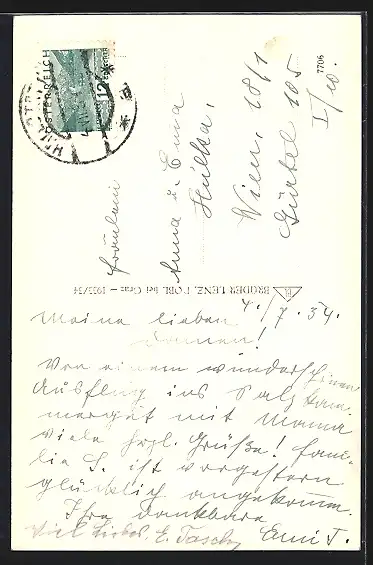 ÖSTERREICH
12
7706
Fräulein
Anna u. Emma
Hulka,
Wien, 18/1
Gürtel 105
I/10.
BRÜDER LENZ, DOBL bei Graz — 1933/34
4./7. 34.
Meine lieben
Damen!
Von einem wunderschönen
Ausflug ins Salzkam-
mergut mit Mama
viele hrzl. Grüße! Fami-
lie S. ist vorgestern
glücklich angekomm.
Ihre dankbare
Emi T.
Viel Liebes. E. Tasch